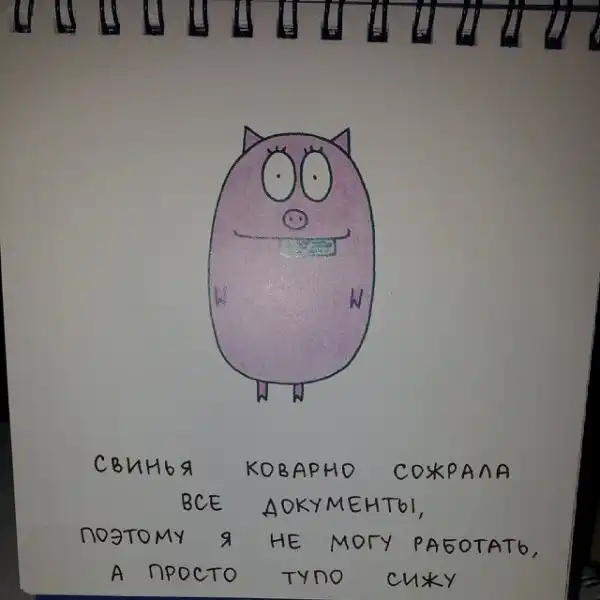 СВИНЬЯ КОВАРНО СОЖРАЛА
ВСЕ ДОКУМЕНТЫ,
ПОЭТОМУ Я НЕ МОГУ РАБОТАТЬ,
А ПРОСТО ТУПО СИЖУ